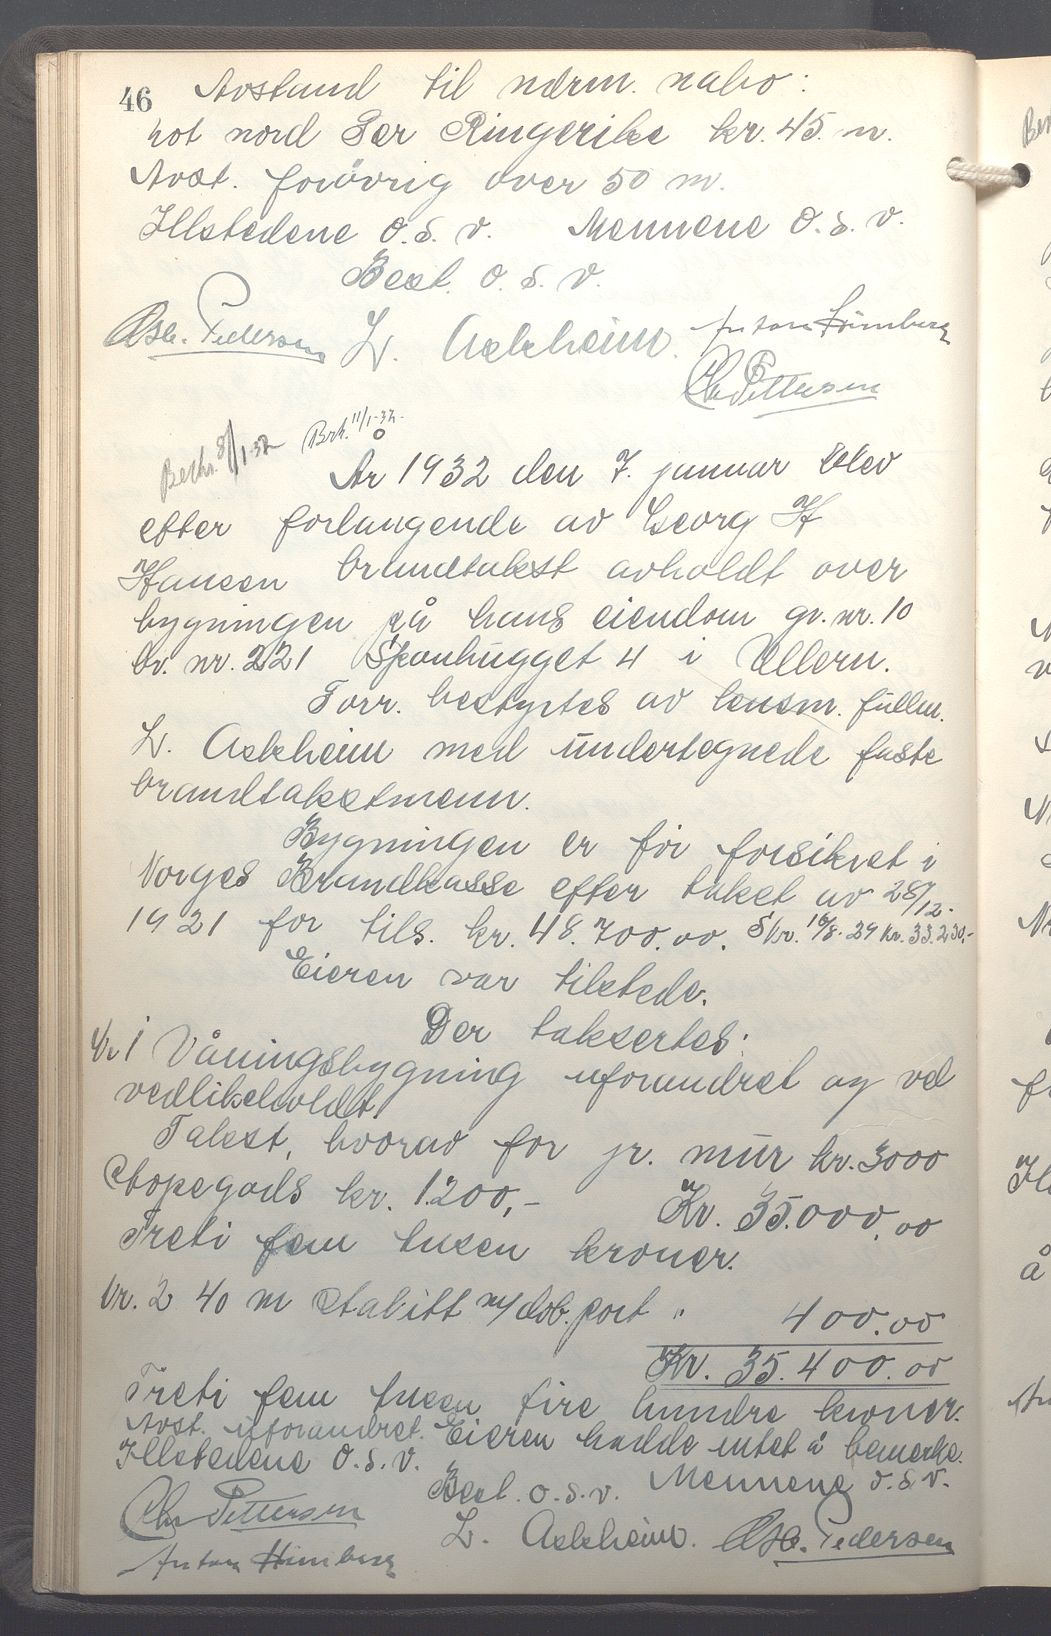 46 Avstand til nærm. nabo:
mot nord Per Ringerike kr. 45. m.
Avst. forövrig over 50 m.
Illstedene o.s.v. Mennene o.s.v.
Best. o.s.v.
Osc. Pedersen L. Askheim. Anton
Chr Pettersen
8/1-32 11/1-32
År 1932 den 7. januar blev
efter forlangende av Georg H
Hansen brandtakst avholdt over
bygningen på hans eiendom gr. nr. 10
br. nr. 221 Sponhugget 4 i Ullern.
Forr. bestyrtes av lensm. fullm.
L. Askheim med undertegnede faste
brandtakstmenn.
Bygningen er för forsikret i
Norges Brandkasse efter takst av 28/12.
1921 for tils. kr. 48.700.00. 29 kr. 33.230,-
Eieren var tilstede.
Der taksertes:
Nr 1 Våningsbygning uforandret og vel
vedlikeholdt
Takst, hvorav for gr. mur kr. 3000
Stöpegods kr. 1200,- Kr. 35.000,00
Treti fem tusen kroner.
Nr. 2 40 m Stakitt m/ dob. port " 400.00
Kr. 35.400.00
Treti fem tusen fire hundre kroner.
Avst. uforandret. Eieren hadde intet å bemerke.
Illstedene o.s.v.
Best. o.s.v. Mennene o.s.v.
Chr Pettersen L. Askheim. Osc. Pedersen
Anton